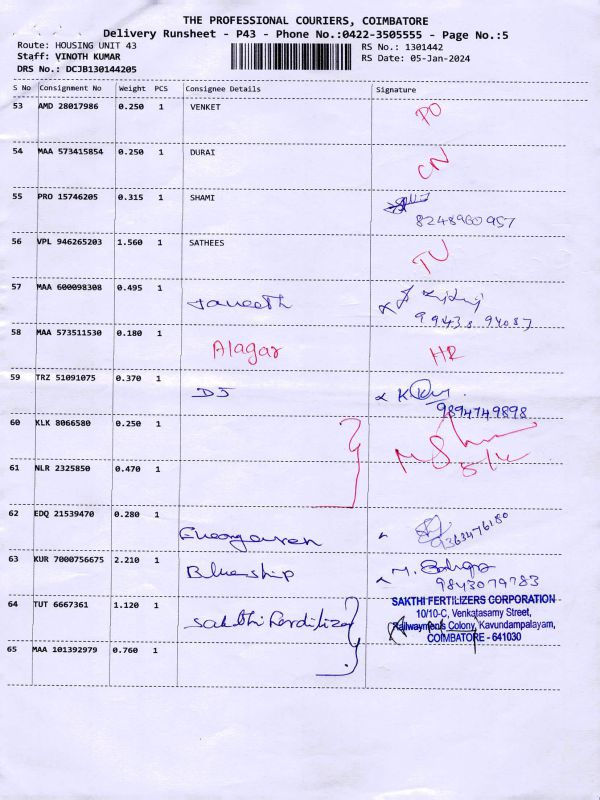 THE PROFESSIONAL COURIERS, COIMBATORE
Delivery Runsheet - P43 - Phone No.:0422-3505555 - Page No.:5
Route: HOUSING UNIT 43 RS No.: 1301442
Staff: VINOTH KUMAR RS Date: 05-Jan-2024
DRS No.: DCJB130144205
S No Consignment No Weight PCS Consignee Details Signature
53 AMD 28017986 0.250 1 VENKET PO
54 MAA 573415854 0.250 1 DURAI CN
55 PRO 15746205 0.315 1 SHAMI
8248960957
56 VPL 946265203 1.560 1 SATHEES TU
57 MAA 600098308 0.495 1
99438 94087
58 MAA 573511530 0.180 1 Alagar HR
59 TRZ 51091075 0.370 1 DJ
9894749898
60 KLK 8066580 0.250 1
61 NLR 2325850 0.470 1
5/1
62 EDQ 21539470 0.280 1
9363476180
63 KUR 7000756675 2.210 1 Blueship
9843079783
64 TUT 6667361 1.120 1 Sakthi Ferdilizer
SAKTHI FERTILIZERS CORPORATION
10/10-C, Venkatasamy Street,
Railwaymen's Colony, Kavundampalayam,
COIMBATORE - 641030
65 MAA 101392979 0.760 1